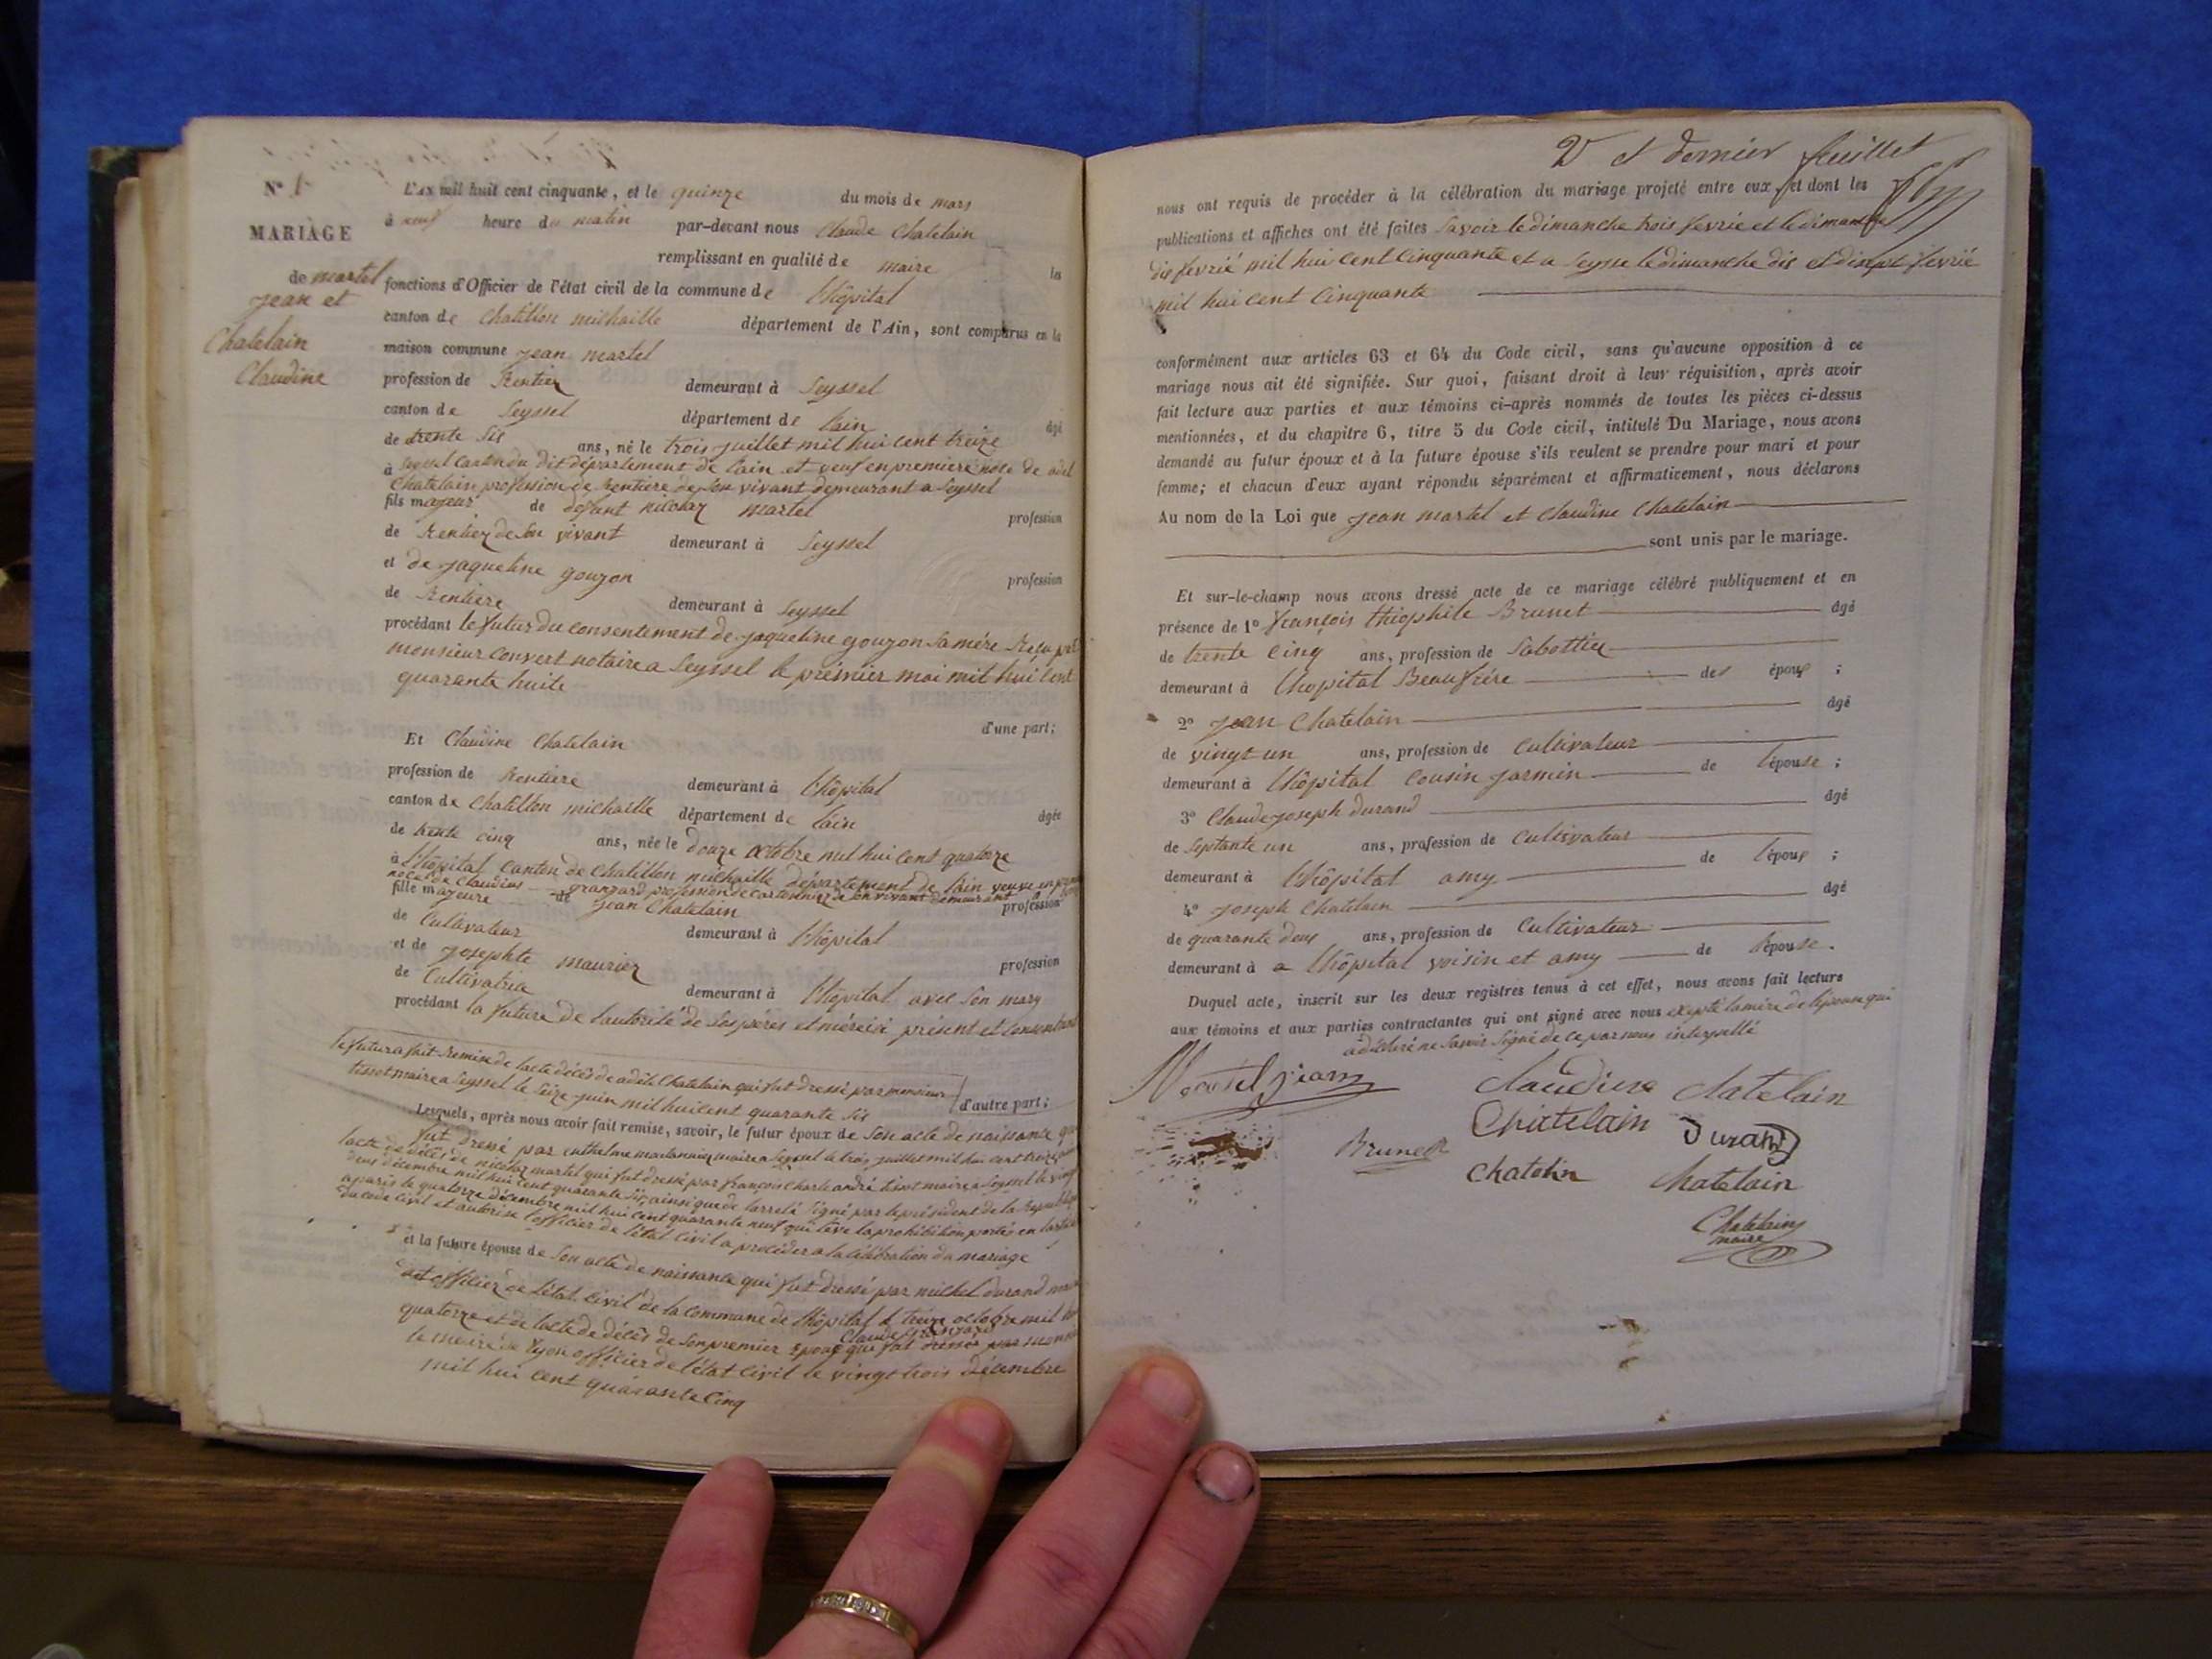 N° 1
MARIAGE
de martel
jean et
Chatelain
Claudine
L'AN mil huit cent cinquante, et le quinze du mois de mars
à neuf heure du matin par-devant nous Claude Chatelain
remplissant en qualité de maire les
fonctions d'Officier de l'état civil de la commune de Lhôpital
canton de Chatillon michaille département de l'Ain, sont comparus en la
maison commune jean martel
profession de Rentier demeurant à Seyssel
canton de Seyssel département de lain âgé
de trente sis ans, né le trois juillet mil hui cent treize
à Seyssel canton du dit département de lain et veuf en premiere noce de adel
Chatelain profession de Rentiere de son vivant demeurant a Seyssel
fils majeur de defunt nicolaz martel profession
de Rentier de son vivant demeurant à Seyssel
et de jaqueline goujon profession
de Rentiere demeurant à Seyssel
procédant le futur du consentement de jaqueline goujon sa mére Reçu par
monsieur convert notaire a Seyssel le premier mai mil hui cent
quarante huite
d'une part;
Et Claudine Chatelain
profession de Rentiere demeurant à lhôpital
canton de Chatillon michaille département de lain âgée
de trente cinq ans, née le douze octobre mil hui cent quatorze
à lhôpital canton de Chatillon michaille département de lain veuve en
noce de Claudius granzard profession de cartonnier de son vivant demeurant
fille majeure de jean Chatelain profession
de Cultivateur demeurant à lhôpital
et de josephte maurier profession
de Cultivatria demeurant à lhôpital avec son mary
procédant la future de lautorité de ses péres et mére ici présent et consentant
le futur a fait Remise de lacte décès de adéle Chatelain qui fut dressé par monsieur
tissot maire a Seyssel le seize juin mil hui cent quarante sis d'autre part;
Lesquels, après nous avoir fait remise, savoir, le futur époux de Son acte de naissance qui
fut dressé par enthelme montannier maire a Seyssel le trois juillet mil hui cent treize
lacte de décès de nicolaz martel qui fut dressé par françois Charle andré tissot maire a Seyssel le vingt
deus décembre mil hui cent quarante sis, ainsi que de larreté Signé par le président de la République
a paris le quatorze décembre mil hui cent quarante neuf qui lève la prohibition portés en larticle
du code civil et autorise lofficier de létat civil a procéder a la célébration du mariage
et la future épouse de Son acte de naissance qui fut dressé par michel durand maire
et officier de létat civil de la commune de lhôpital le treize octobre mil hui
quatorze et de lacte de décès de son premier époux Claude granzard qui fut dressé par
le maire de lyon officier de létat civil le vingt trois décembre
mil hui cent quarante cinq
2e et dernier feuillet
nous ont requis de procéder à la célébration du mariage projeté entre eux, et dont les
publications et affiches ont été faites Savoir le dimanche trois fevrié et le dimanche
dis fevrié mil hui cent cinquante et a Seysse le dimanche dis et disept fevrié
mil hui cent cinquante
conformément aux articles 63 et 64 du Code civil, sans qu'aucune opposition à ce
mariage nous ait été signifiée. Sur quoi, faisant droit à leur réquisition, après avoir
fait lecture aux parties et aux témoins ci-après nommés de toutes les pièces ci-dessus
mentionnées, et du chapitre 6, titre 5 du Code civil, intitulé Du Mariage, nous avons
demandé au futur époux et à la future épouse s'ils veulent se prendre pour mari et pour
femme; et chacun d'eux ayant répondu séparément et affirmativement, nous déclarons
Au nom de la Loi que jean martel et Claudine Chatelain
sont unis par le mariage.
Et sur-le-champ nous avons dressé acte de ce mariage célébré publiquement et en
présence de 1° françois théophile Brunet âgé
de trente cinq ans, profession de Sabottier
demeurant à lhopital Beaufrére des époux ;
2° jean Chatelain âgé
de vingt un ans, profession de Cultivateur
demeurant à lhôpital cousin jarmin de lépouse ;
3° Claude joseph durand âgé
de Septante un ans, profession de Cultivateur
demeurant à lhôpital amy de lépoux ;
4° joseph Chatelain âgé
de quarante deus ans, profession de Cultivateur
demeurant à a lhôpital voisin et amy de lépouse.
Duquel acte, inscrit sur les deux registres tenus à cet effet, nous avons fait lecture
aux témoins et aux parties contractantes qui ont signé avec nous exepté la mére de lépouse qui
a déclaré ne savoir Signé de ce par nous interpellé
Martel jean Claudine Chatelain
Chatelain Durand
Brunet
Chatelin Chatelain
Chatelain
maire